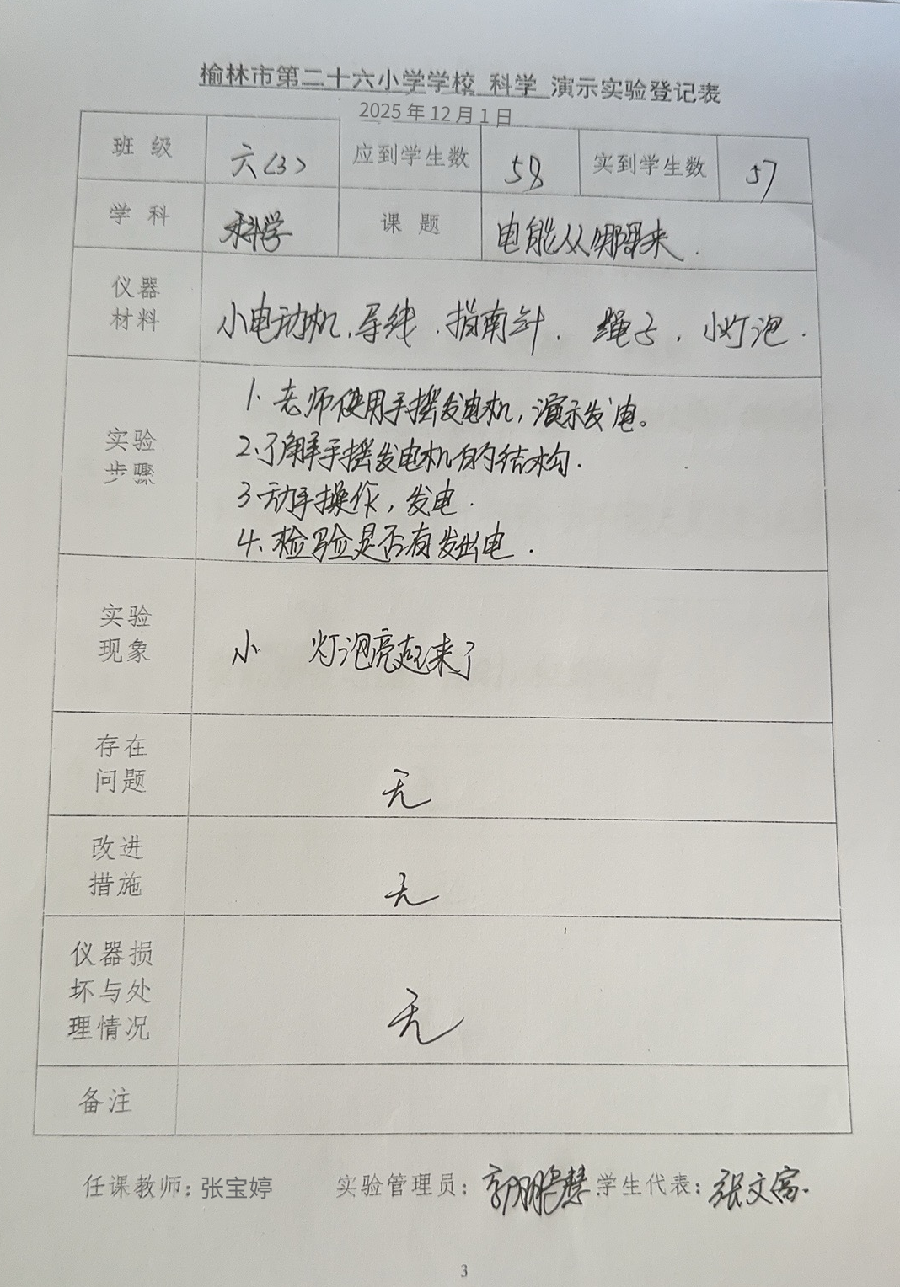 榆林市第二十六小学学校 科学 演示实验登记表
2025年12月1日
班 级 六(3) 应到学生数 58 实到学生数 57
学 科 科学 课 题 电能从哪里来.
仪器
材料
小电动机、导线、指南针. 绳子. 小灯泡.
实验
步骤
1. 老师使用手摇发电机,演示发电。
2.了解手摇发电机的结构.
3动手操作,发电.
4.检验是否有发出电.
实验
现象
小 灯泡亮起来了
存在
问题
无
改进
措施
无
仪器损
坏与处
理情况
无
备注
任课教师:张宝婷 实验管理员: 学生代表:张文富.
3